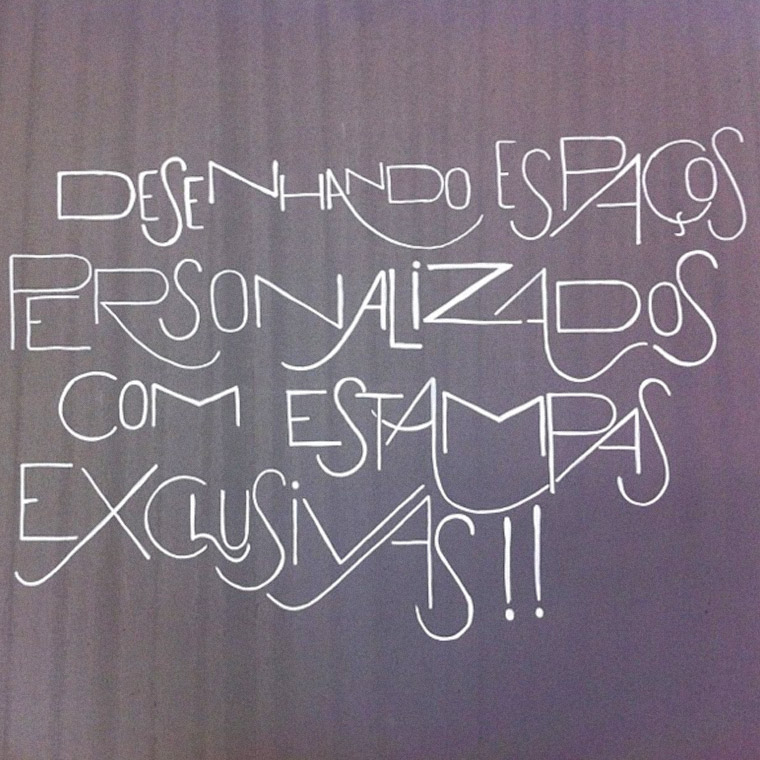 DESENHANDO ESPAÇOS
PERSONALIZADOS
COM ESTAMPAS
EXCLUSIVAS!!